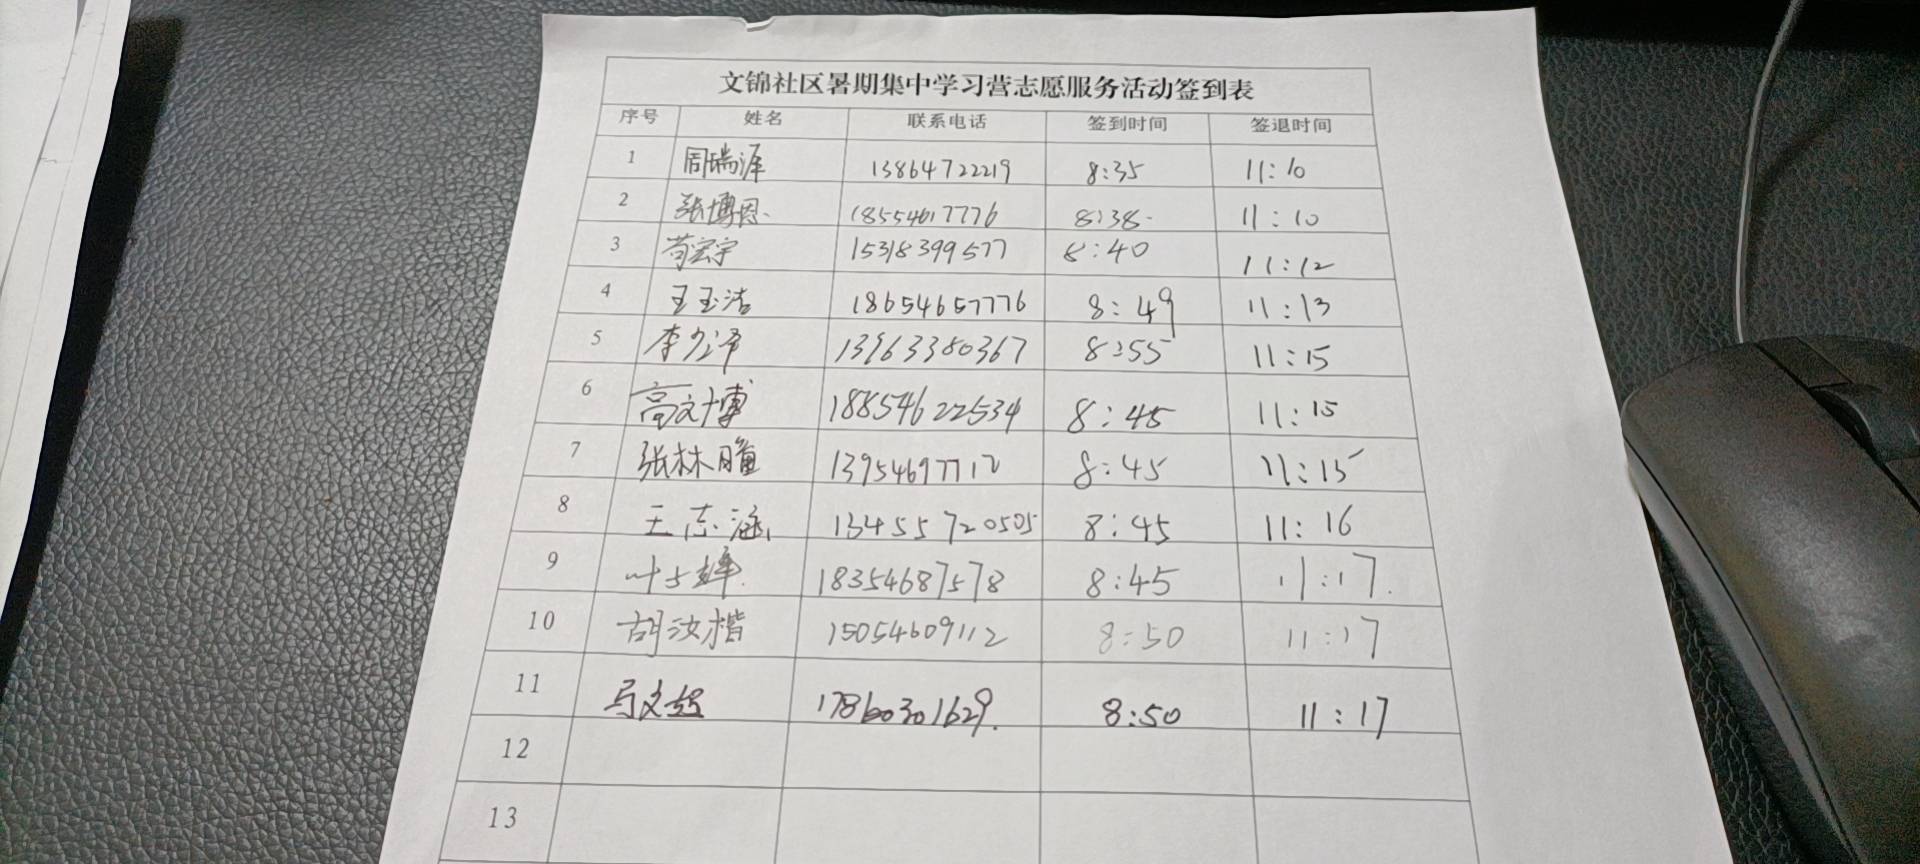 文锦社区暑期集中学习营志愿服务活动签到表
序号 姓名 联系电话 签到时间 签退时间
1 周瑞涯 13864722219 8:35 11:10
2 张博恩 18554617776 8:38 11:10
3 苟宏宇 15318399577 8:40 11:12
4 王玉洁 18654657776 8:49 11:13
5 李 13963380367 8:55 11:15
6 高文博 18854622534 8:45 11:15
7 张林瞳 13954697712 8:45 11:15
8 王志涵 13455720505 8:45 11:16
9 叶 18354687578 8:45 11:17
10 胡汝楷 15054609112 8:50 11:17
11 马文超 17860301629 8:50 11:17
12
13